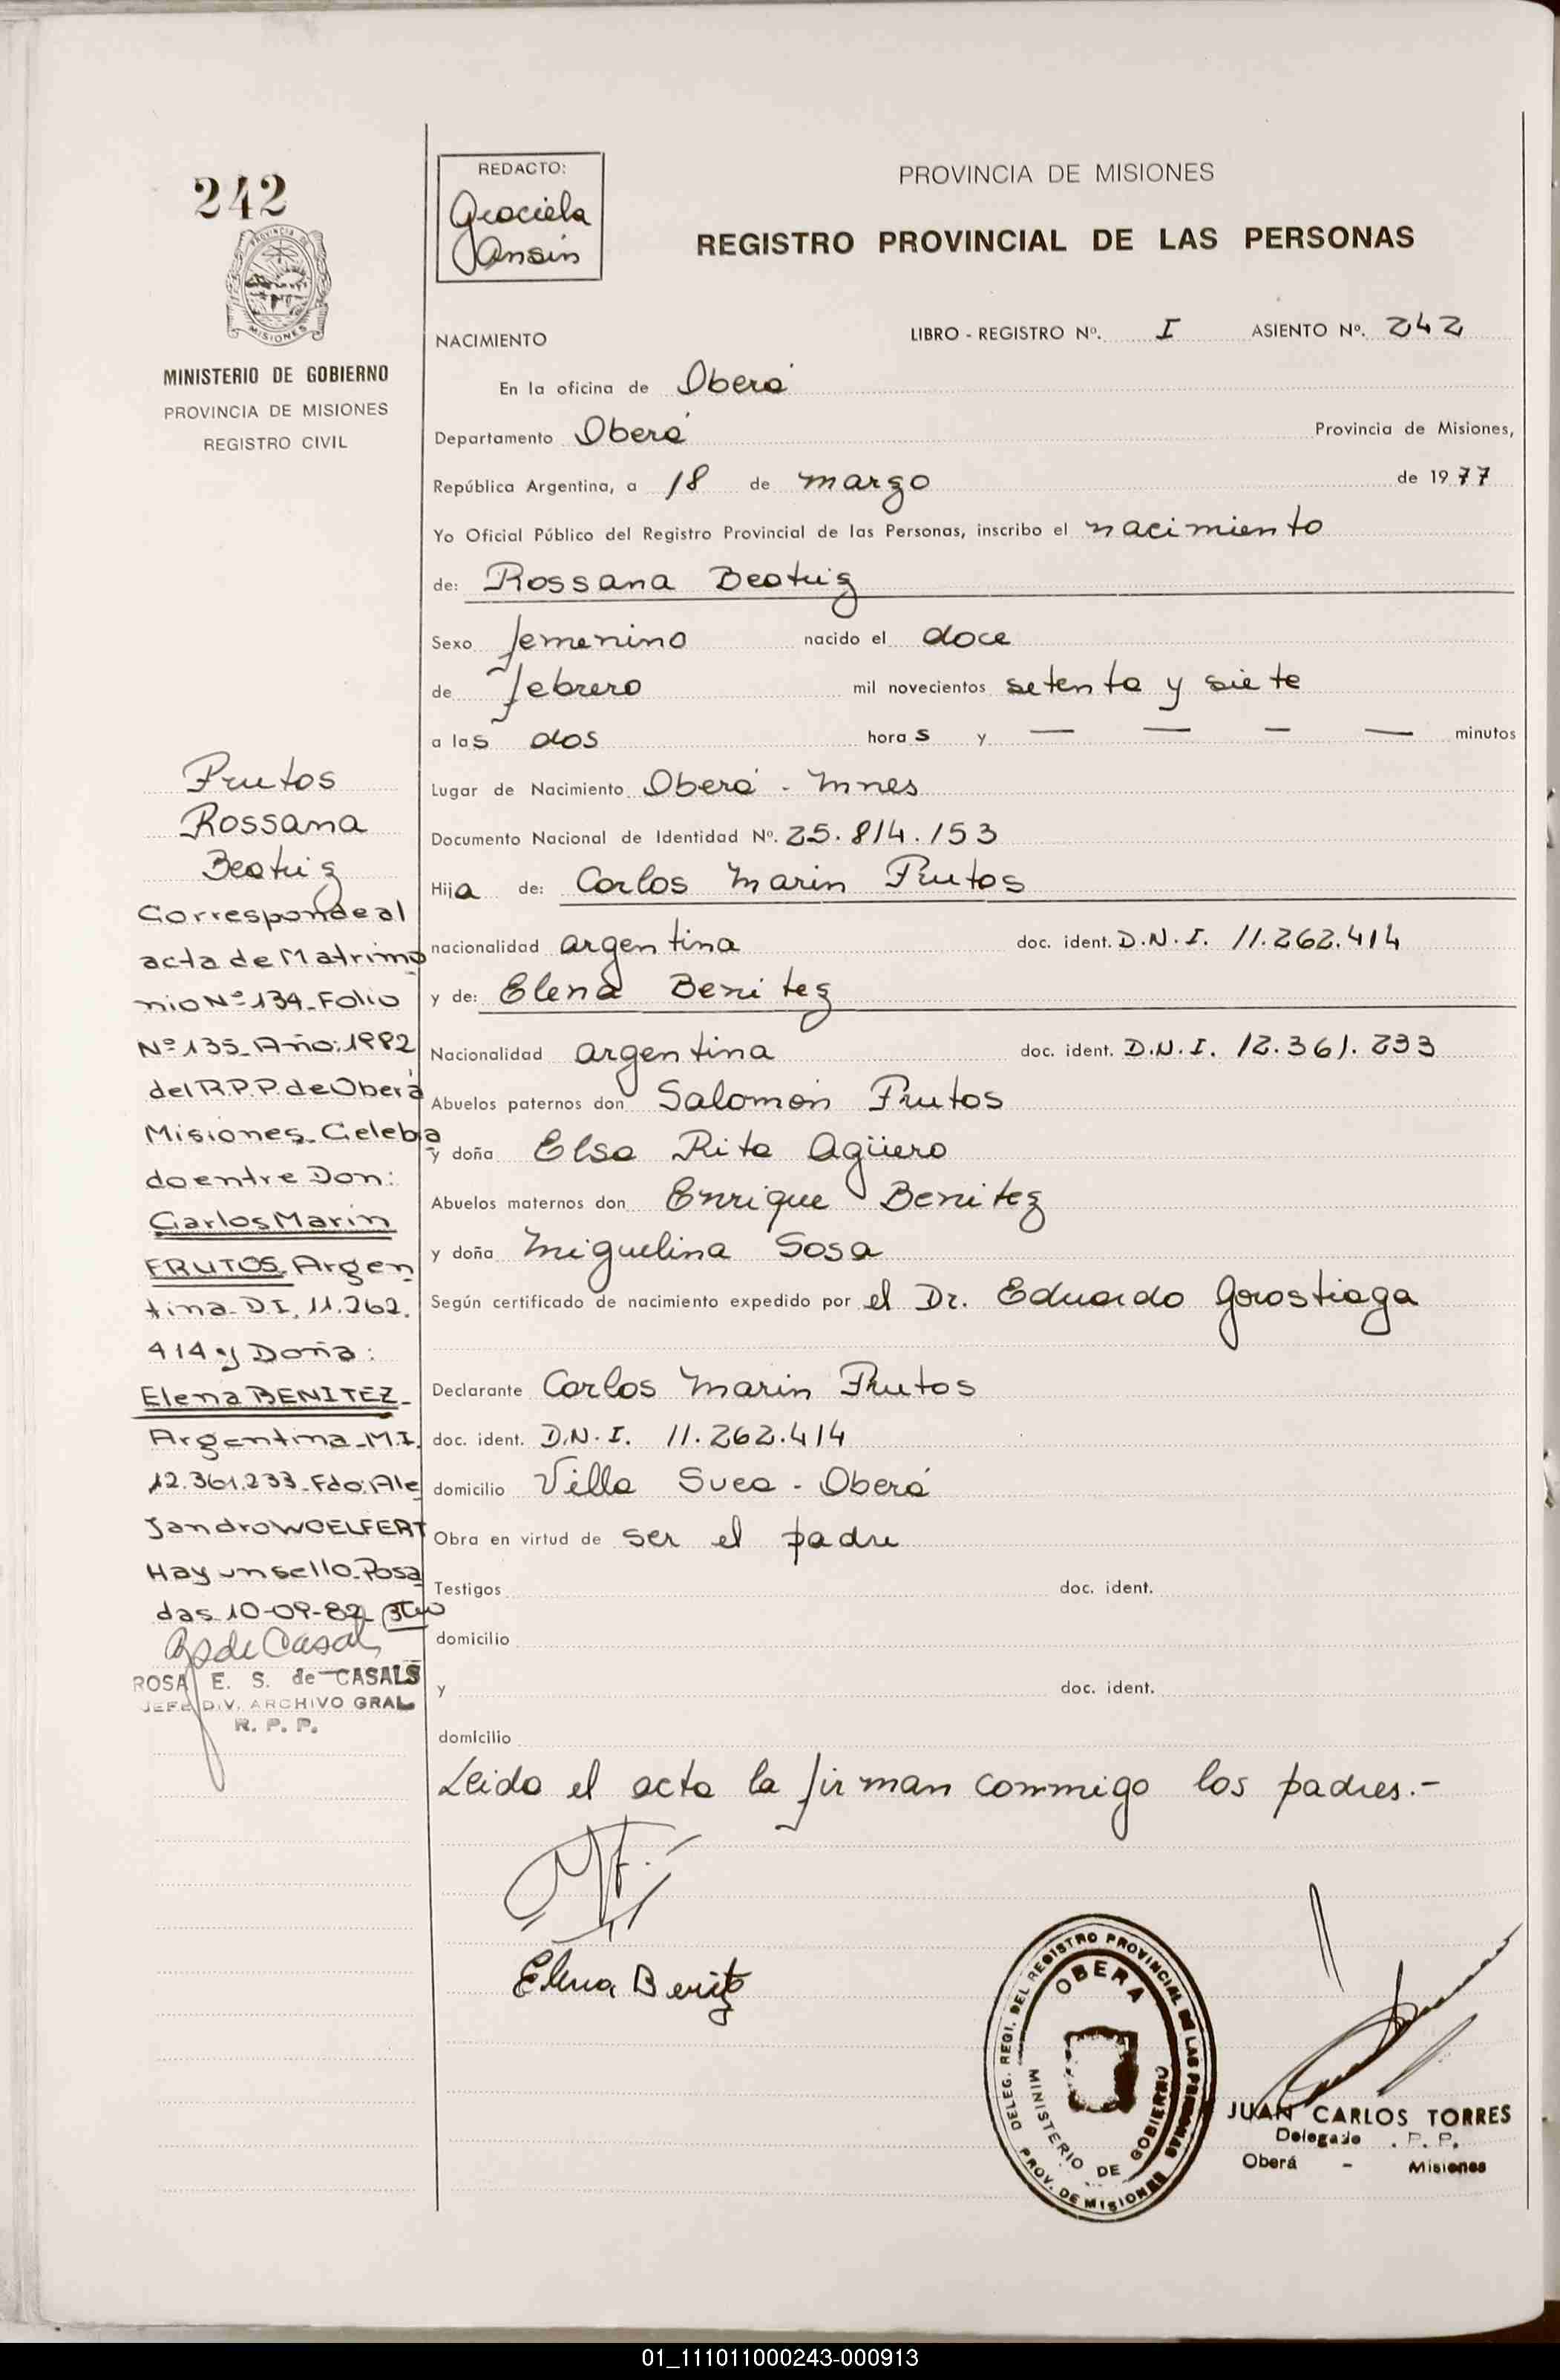 242
PROVINCIA DE
MISIONES
MINISTERIO DE GOBIERNO
PROVINCIA DE MISIONES
REGISTRO CIVIL
REDACTO:
Graciela
Ansin
PROVINCIA DE MISIONES
REGISTRO PROVINCIAL DE LAS PERSONAS
NACIMIENTO LIBRO - REGISTRO Nº. I ASIENTO Nº. 242
En la oficina de Oberá
Departamento Oberá Provincia de Misiones,
República Argentina, a 18 de marzo de 1977
Yo Oficial Público del Registro Provincial de las Personas, inscribo el nacimiento
de: Rossana Beatriz
Sexo femenino nacido el doce
de febrero mil novecientos setenta y siete
a las dos horas y — — — — minutos
Lugar de Nacimiento Oberá - Mnes
Documento Nacional de Identidad Nº. 25.814.153
Hija de: Carlos Marin Frutos
nacionalidad argentina doc. ident. D.N.I. 11.262.414
y de: Elena Benitez
Nacionalidad argentina doc. ident. D.N.I. 12.361.233
Abuelos paternos don Salomón Frutos
y doña Elsa Rita Agüero
Abuelos maternos don Enrique Benitez
y doña Miguelina Sosa
Según certificado de nacimiento expedido por el Dr. Eduardo Gorostiaga
Declarante Carlos Marin Frutos
doc. ident. D.N.I. 11.262.414
domicilio Villa Svea - Oberá
Obra en virtud de ser el padre
Testigos doc. ident.
domicilio
y doc. ident.
domicilio
Leida el acta la firman conmigo los padres.-
Frutos
Rossana
Beatriz
Corresponde al
acta de Matrimo
nio Nº 134. Folio
Nº 135. Año: 1982
del R.P.P. de Oberá
Misiones. Celebra
do entre Don:
Carlos Marin
FRUTOS. Argen
tina. D.I. 11.262.
414 y Doña:
Elena BENITEZ.
Argentina. M.I.
12.361.233. Fdo: Ale
jandro WOELFERT
Hay un sello. Posa
das 10-09-82
ROSA E. S. de CASALS
JEFE DIV. ARCHIVO GRAL
R. P. P.
Elena Benitez
DELEG. REGI. DEL REGISTRO PROVINCIAL DE LAS PERSONAS
OBERA
MINISTERIO DE GOBIERNO
PROV. DE MISIONES
JUAN CARLOS TORRES
Delegado . P. P.
Oberá - Misiones
01_111011000243-000913